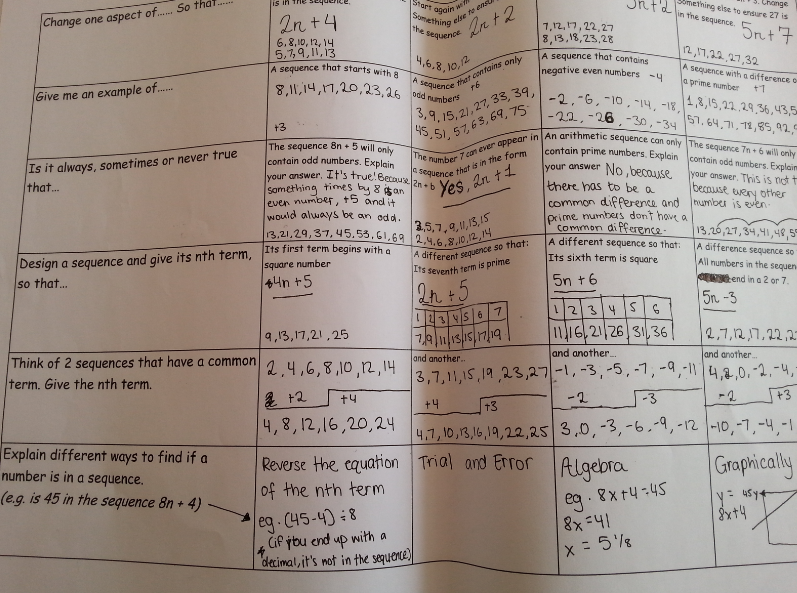 Change one aspect of...... So that......
is in the sequence.
2n + 4
6,8,10,12,14
5,7,9,11,13
Start again with
Something else to ensure
the sequence
2n + 2
4,6,8,10,12
7,12,17,22,27
8,13,18,23,28
5n+2
Change
something else to ensure 27 is
in the sequence.
5n+7
12,17,22,27,32
Give me an example of......
A sequence that starts with 8
8,11,14,17,20,23,26
+3
A sequence that contains only
odd numbers +6
3,9,15,21,27,33,39,
45,51,57,63,69,75
A sequence that contains
negative even numbers -4
-2,-6,-10,-14,-18,
-22,-26,-30,-34
A sequence with a difference o
a prime number +7
1,8,15,22,29,36,43,5
57,64,71,78,85,92,
Is it always, sometimes or never true
that...
The sequence 8n + 5 will only
contain odd numbers. Explain
your answer. It's true! Because
something times by 8 is an
even number, +5 and it
would always be an odd.
13,21,29,37,45,53,61,69
The number 7 can ever appear in
a sequence that is in the form
2n + b Yes, 2n + 1
3,5,7,9,11,13,15
2,4,6,8,10,12,14
An arithmetic sequence can only
contain prime numbers. Explain
your answer No, because
there has to be a
common difference and
prime numbers don't have a
common difference.
The sequence 7n + 6 will only
contain odd numbers. Explain
your answer. This is not t
because every other
number is even.
13,20,27,34,41,48,55
Design a sequence and give its nth term,
so that...
Its first term begins with a
square number
4n +5
9,13,17,21,25
A different sequence so that:
Its seventh term is prime
2n + 5
1 2 3 4 5 6 7
7 9 11 13 15 17 19
A different sequence so that:
Its sixth term is square
5n + 6
1 2 3 4 5 6
11 16 21 26 31 36
A difference sequence so
All numbers in the sequen
end in a 2 or 7.
5n -3
2,7,12,17,22,2
Think of 2 sequences that have a common
term. Give the nth term.
2,4,6,8,10,12,14
+2 +4
4,8,12,16,20,24
and another...
3,7,11,15,19,23,27
+4 +3
4,7,10,13,16,19,22,25
and another...
-1,-3,-5,-7,-9,-11
-2 -3
3,0,-3,-6,-9,-12
and another...
4,2,0,-2,-4,
-2 +3
-10,-7,-4,-1
Explain different ways to find if a
number is in a sequence.
(e.g. is 45 in the sequence 8n + 4)
Reverse the equation
of the nth term
eg. (45-4)÷8
(if you end up with a
decimal, it's not in the sequence)
Trial and Error
Algebra
eg. 8x+4=45
8x=41
x = 5 1/8
Graphically
y = 45
8x+4